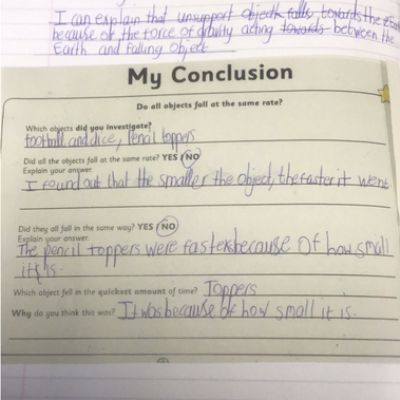 I can explain that unsupport objects falls towards the Ear
because of the force of gravity acting towards between the
Earth and falling object
My Conclusion
Do all objects fall at the same rate?
Which objects did you investigate?
football and dice, pencil toppers
Did all the objects fall at the same rate? YES / NO
Explain your answer.
I found out that the smaller the object, the faster it went
Did they all fall in the same way? YES / NO
Explain your answer.
The pencil toppers were faster because of how small
it is.
Which object fell in the quickest amount of time? Toppers
Why do you think this was? It was because of how small it is.